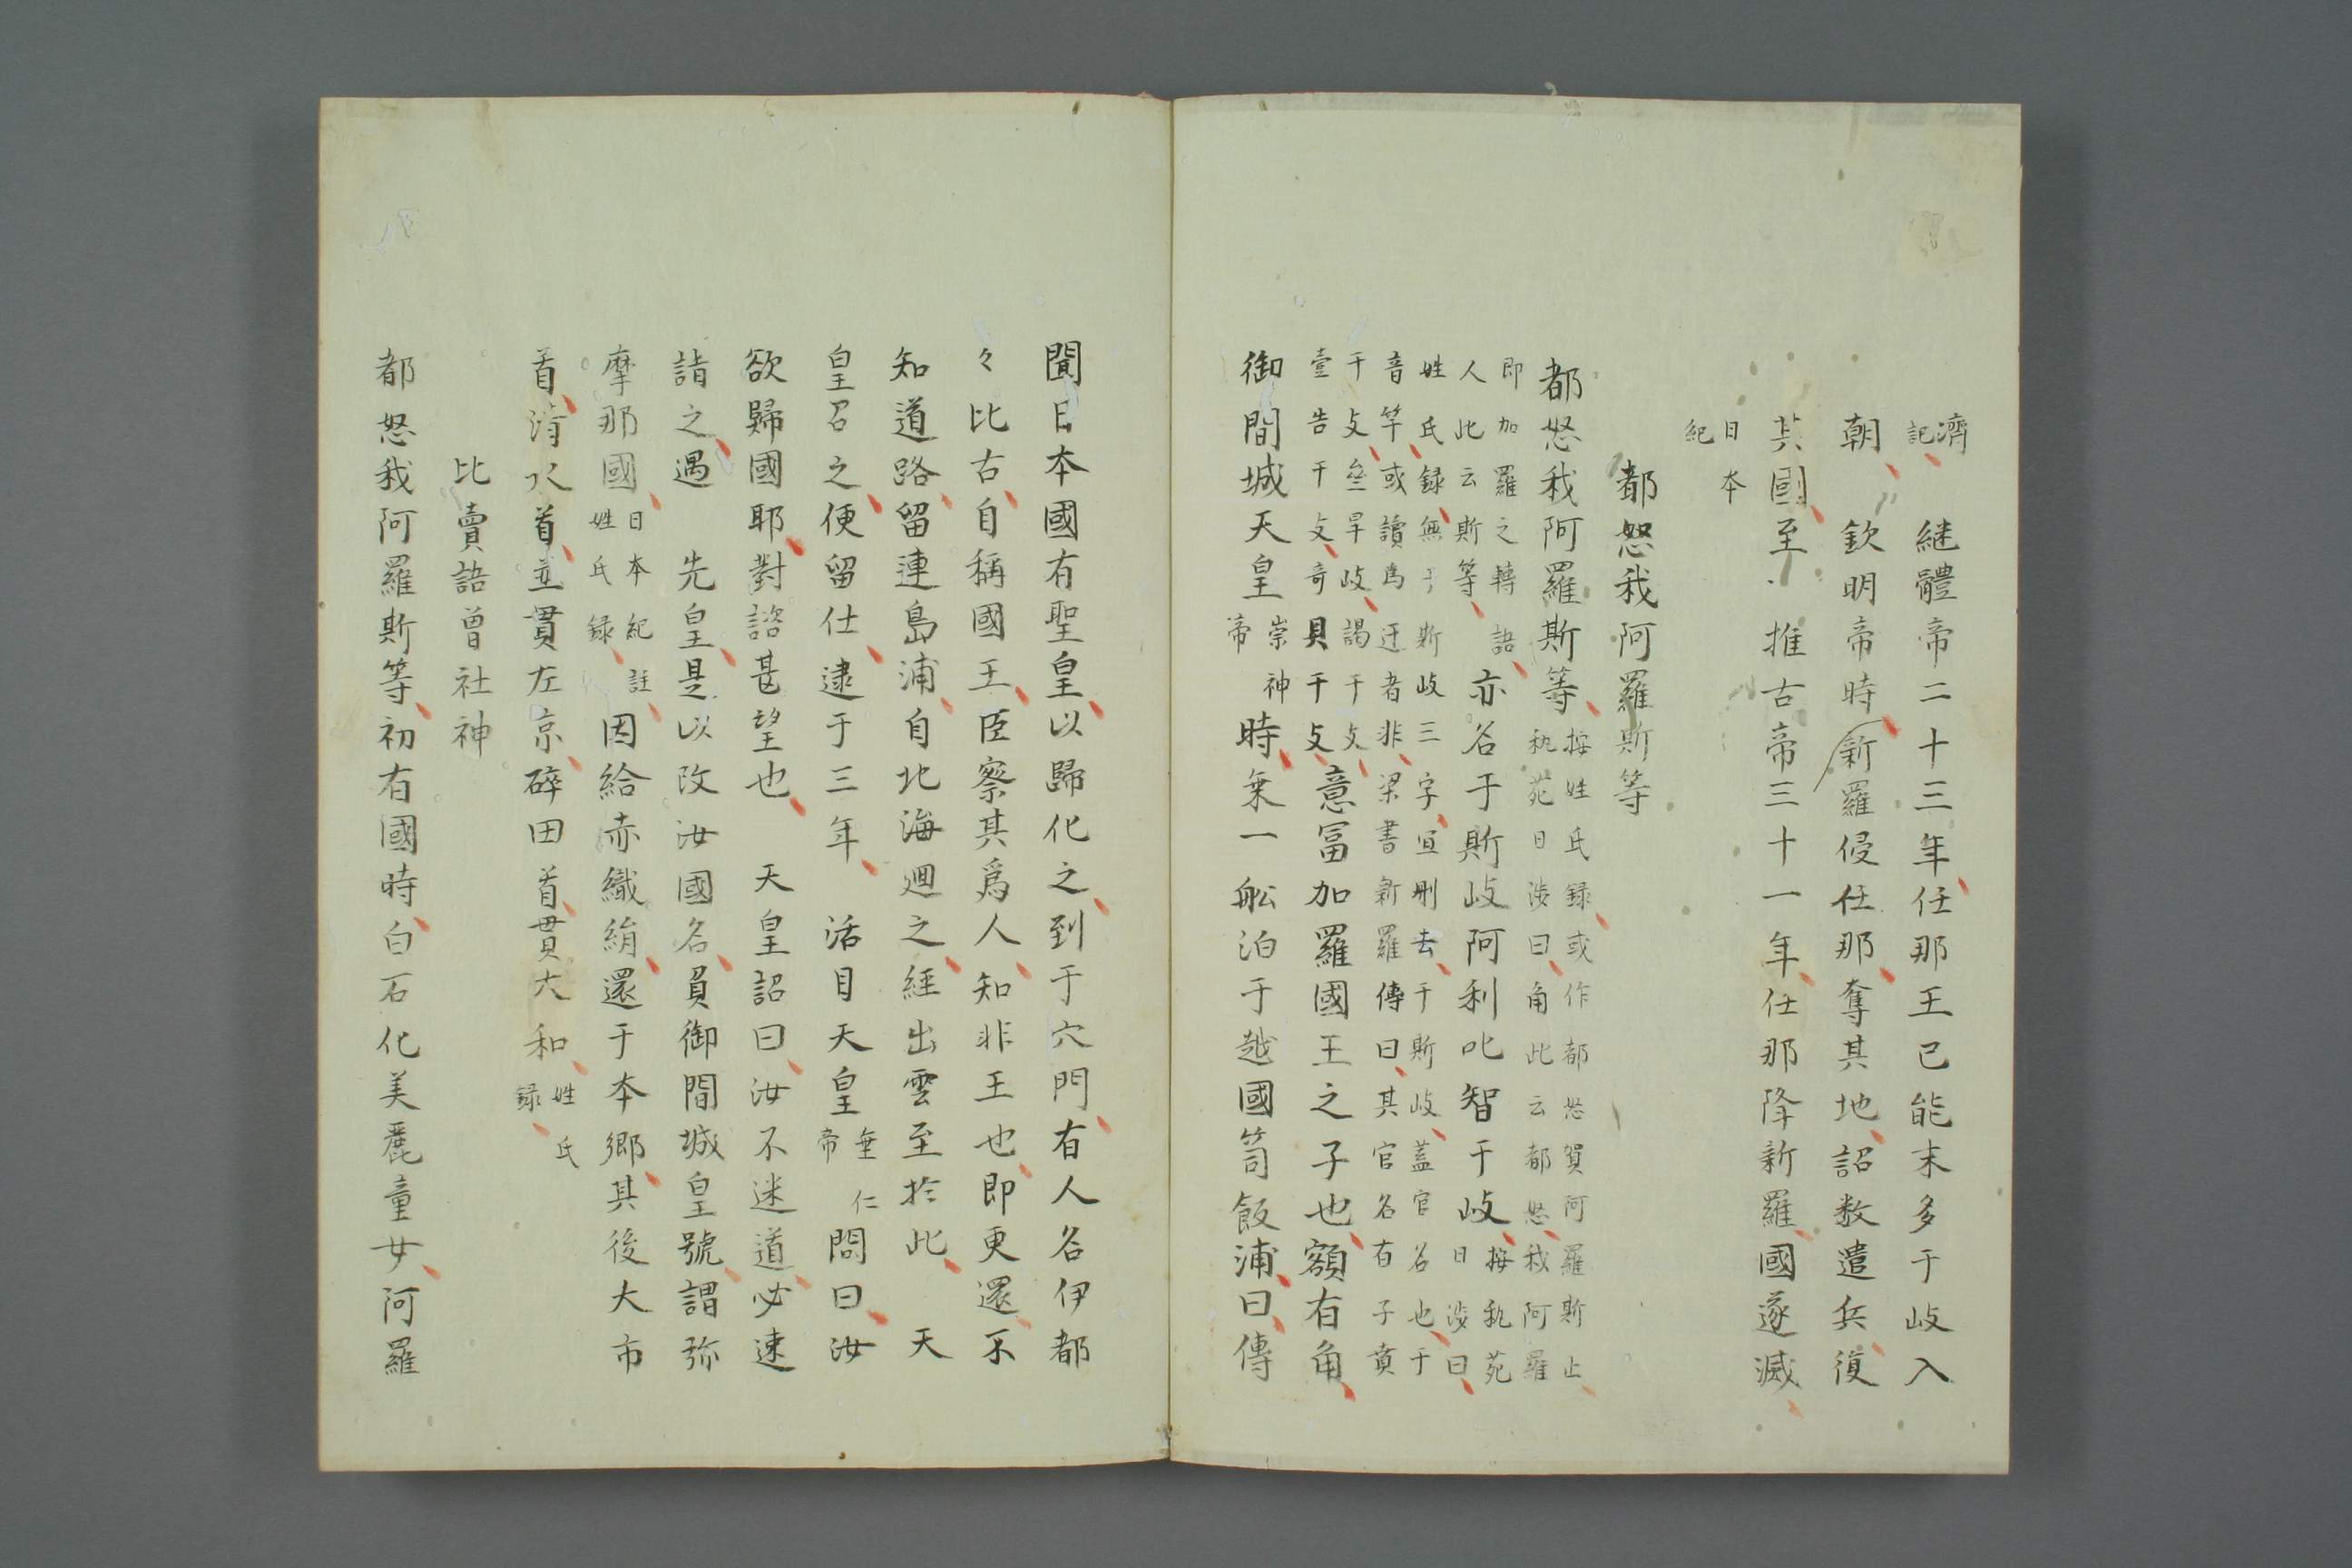 濟記　継體帝二十三年任那王己能末多于岐入
朝　欽明帝時新羅侵任那奪其地詔数遣兵復
其國至　推古帝三十一年任那降新羅國遂滅
日本紀
都怒我阿羅斯等
都怒我阿羅斯等按姓氏録或作都怒賀阿羅斯止
秇苑日渉曰角此云都怒我阿羅
即加羅之轉語
人此云斯等亦名于斯岐阿利叱智干岐按秇苑日渉曰
姓氏録無于斯岐三字宜刪去于斯岐蓋官名也于
音竿或讀為迂者非梁書新羅傳曰其官名有子賁
干攴壹旱岐謁干攴
壹告干攴奇貝干攴意冨加羅國王之子也額有角
御間城天皇崇神帝時乗一舩泊于越國笥飯浦曰傳
聞日本國有聖皇以歸化之到于穴門有人名伊都
々比古自稱國王臣察其爲人知非王也即更還不
知道路留連島浦自北海廻之經出雲至於此　天
皇召之便留仕逮于三年　活目天皇垂仁帝問曰汝
欲歸國耶對諮甚望也　天皇詔曰汝不迷道必速
詣之遇　先皇是以改汝國名負御間城皇號謂弥
摩那國日本紀註姓氏録因給赤織絹還于本郷其後大市
首清水首並貫左京碎田首貫大和姓氏録
比賣語曾社神
都怒我阿羅斯等初有國時白石化美麗童女阿羅